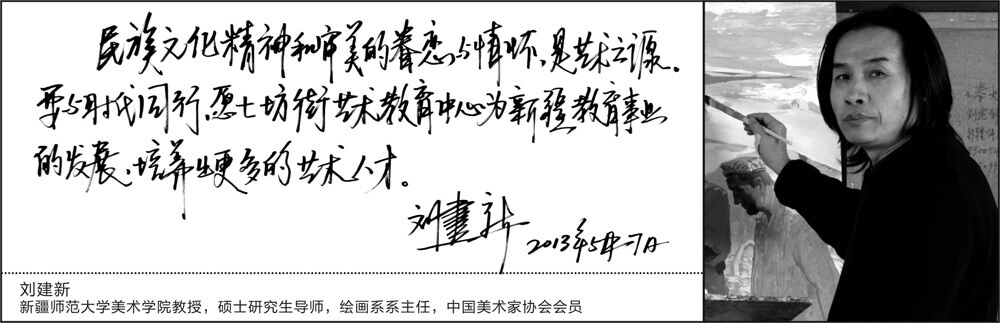 民族文化精神和审美的眷恋与情怀、是艺术之源。
要与时代同行，愿七坊街艺术教育中心为新疆教育事业
的发展、培养出更多的艺术人才。
刘建新 2013年5月7日
刘建新
新疆师范大学美术学院教授，硕士研究生导师，绘画系系主任，中国美术家协会会员